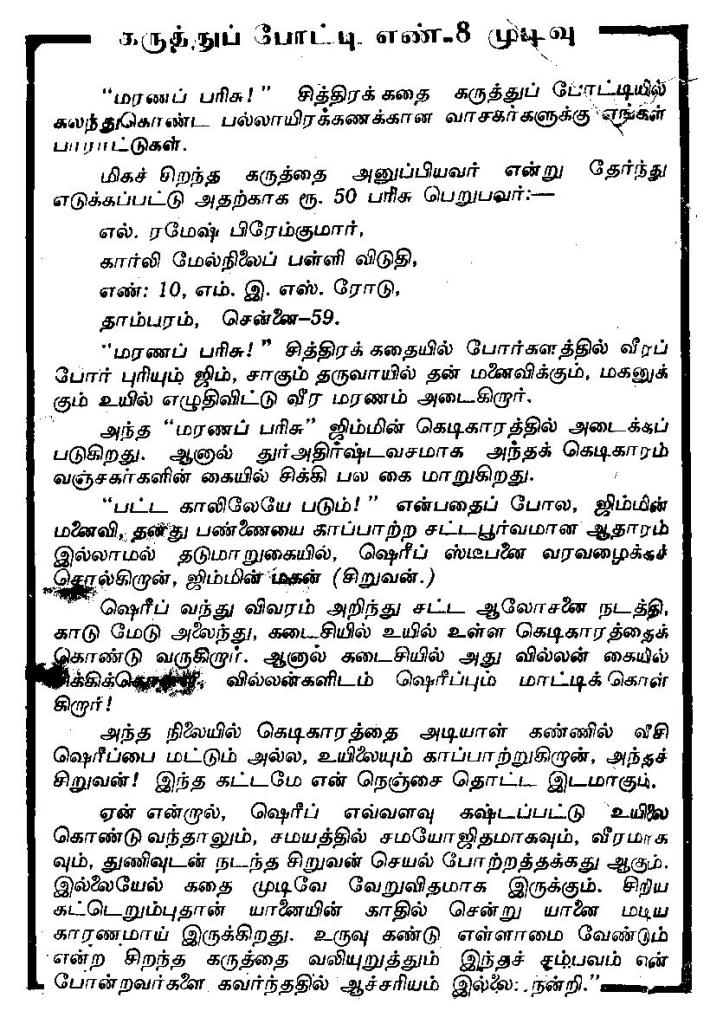 கருத்துப் போட்டி எண்-8 முடிவு
"மரணப் பரிசு!" சித்திரக் கதை கருத்துப் போட்டியில்
கலந்துகொண்ட பல்லாயிரக்கணக்கான வாசகர்களுக்கு எங்கள்
பாராட்டுகள்.
மிகச் சிறந்த கருத்தை அனுப்பியவர் என்று தேர்ந்து
எடுக்கப்பட்டு அதற்காக ரூ. 50 பரிசு பெறுபவர்:—
எல். ரமேஷ் பிரேம்குமார்,
கார்லி மேல்நிலைப் பள்ளி விடுதி,
எண்: 10, எம். இ. எஸ். ரோடு,
தாம்பரம், சென்னை-59.
"மரணப் பரிசு!" சித்திரக் கதையில் போர்களத்தில் வீரப்
போர் புரியும் ஜிம், சாகும் தருவாயில் தன் மனைவிக்கும், மகனுக்
கும் உயில் எழுதிவிட்டு வீர மரணம் அடைகிறார்.
அந்த "மரணப் பரிசு" ஜிம்மின் கெடிகாரத்தில் அடைக்கப்
படுகிறது. ஆனால் துர்அதிர்ஷ்டவசமாக அந்தக் கெடிகாரம்
வஞ்சகர்களின் கையில் சிக்கி பல கை மாறுகிறது.
"பட்ட காலிலேயே படும்!" என்பதைப் போல, ஜிம்மின்
மனைவி, தனது பண்ணையை காப்பாற்ற சட்டபூர்வமான ஆதாரம்
இல்லாமல் தடுமாறுகையில், ஷெரீப் ஸ்டீபனை வரவழைக்கச்
சொல்கிறான், ஜிம்மின் மகன் (சிறுவன்.)
ஷெரீப் வந்து விவரம் அறிந்து சட்ட ஆலோசனை நடத்தி,
காடு மேடு அலைந்து, கடைசியில் உயில் உள்ள கெடிகாரத்தைக்
கொண்டு வருகிறார். ஆனால் கடைசியில் அது வில்லன் கையில்
வில்லன்களிடம் ஷெரீப்பும் மாட்டிக் கொள்
கிறார்!
அந்த நிலையில் கெடிகாரத்தை அடியாள் கண்ணில் வீசி
ஷெரீப்பை மட்டும் அல்ல, உயிலையும் காப்பாற்றுகிறான், அந்தச்
சிறுவன்! இந்த கட்டமே என் நெஞ்சை தொட்ட இடமாகும்.
ஏன் என்றால், ஷெரீப் எவ்வளவு கஷ்டப்பட்டு உயிலை
கொண்டு வந்தாலும், சமயத்தில் சமயோஜிதமாகவும், வீரமாக
வும், துணிவுடன் நடந்த சிறுவன் செயல் போற்றத்தக்கது ஆகும்.
இல்லையேல் கதை முடிவே வேறுவிதமாக இருக்கும். சிறிய
கட்டெறும்புதான் யானையின் காதில் சென்று யானை மடிய
காரணமாய் இருக்கிறது. உருவு கண்டு எள்ளாமை வேண்டும்
என்ற சிறந்த கருத்தை வலியுறுத்தும் இந்தச் சம்பவம் என்
போன்றவர்களை கவர்ந்ததில் ஆச்சரியம் இல்லை: நன்றி."